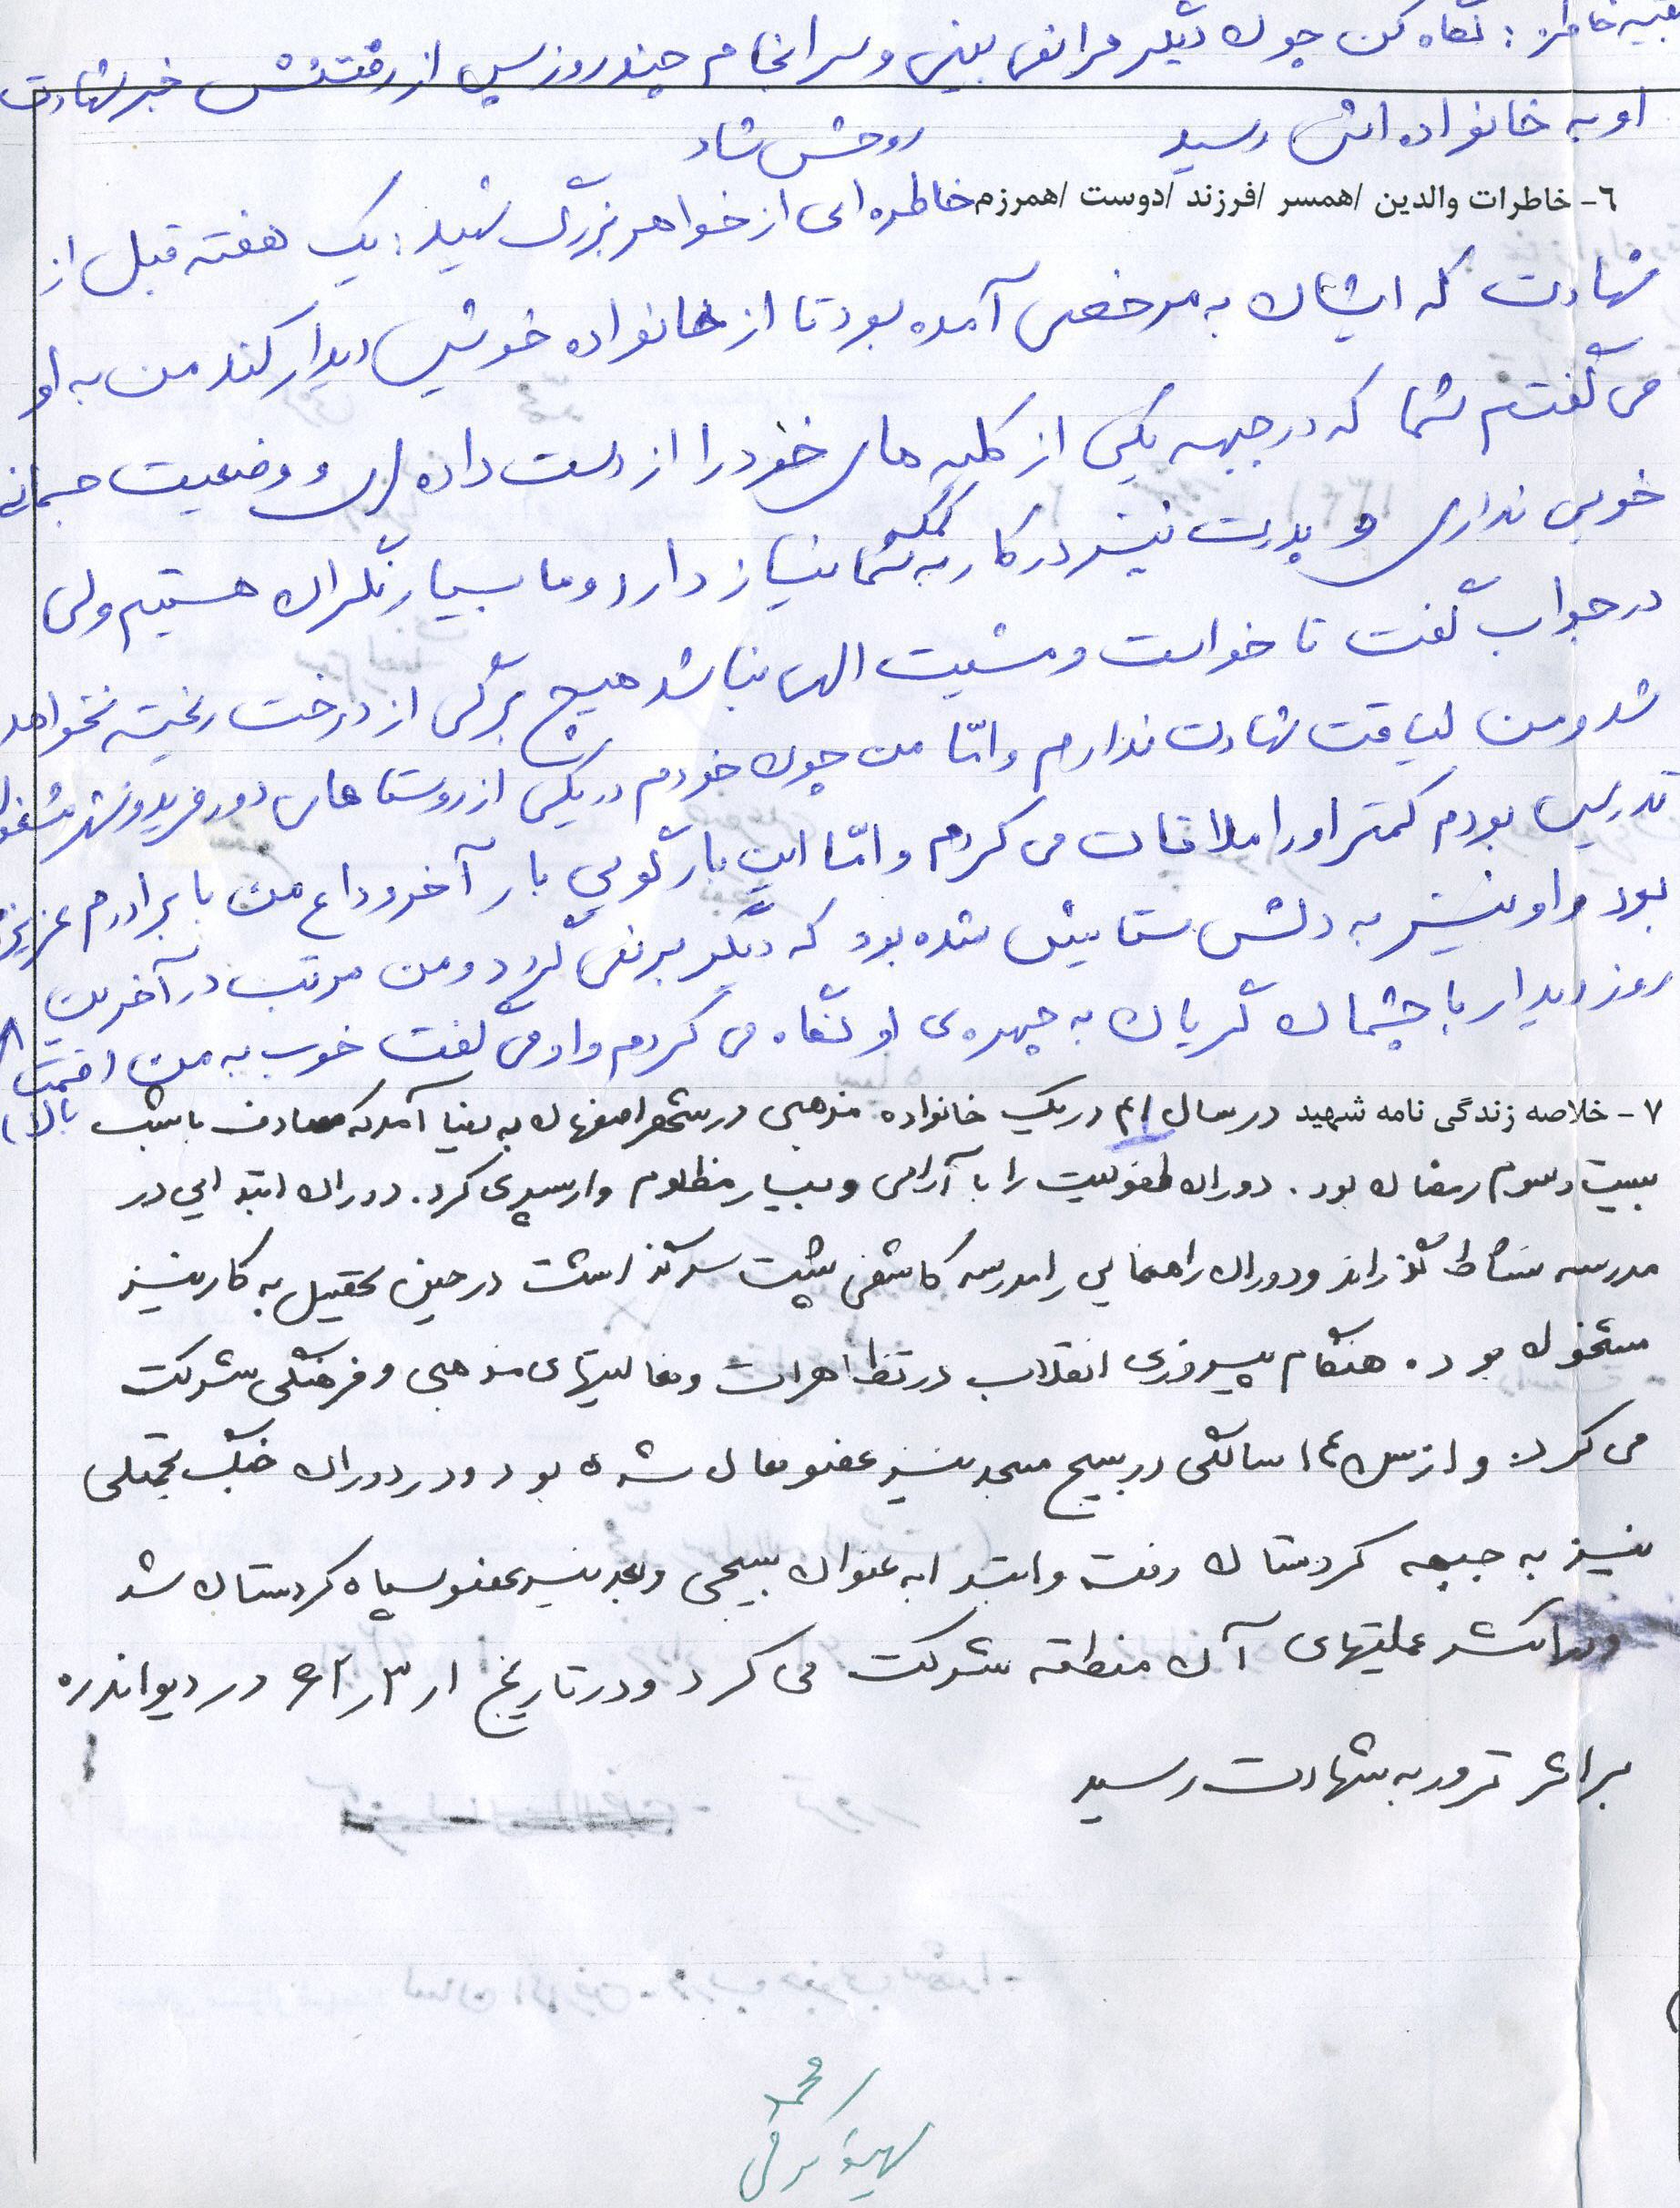 بقیه خاطره : نگاه کن چون دیگر مرا نمی بینی و سرانجام چند روز پس از رفتنش خبر شهادت
او به خانواده اش رسید روحش شاد
٦- خاطرات والدین /همسر /فرزند /دوست /همرزم خاطره ای از خواهر بزرگ شهید : یک هفته قبل از
شهادت که ایشان به مرخصی آمده بود تا از خانواده خویش دیدار کند من به او
می گفتم شما که در جبهه یکی از کلیه های خود را از دست داده ای و وضعیت جسمانی
خوبی نداری و پدرت نیز در کار به کمک شما نیاز دارد و ما بسیار نگران هستیم ولی
در جواب گفت تا خواست و مشیت الهی نباشد هیچ برگی از درخت ریخته نخواهد
شد و من لیاقت شهادت ندارم و امّا من چون خودم در یکی از روستا های دور فریدونشهر مشغول
تدریس بودم کمتر او را ملاقات می کردم و امّا این بار گویی بار آخر وداع من با برادرم عزیزم
بود و او نیز به دلش شده بود که دیگر بر نمی گردد و من مرتب در آخرین
روز دیدار با چشمان گریان به چهره ی او نگاه می کردم و او می گفت خوب به من (قسمت
بالا)
٧- خلاصه زندگی نامه شهید در سال ۴۱ در یک خانواده مذهبی در شهر اصفهان به دنیا آمد که مصادف با شب
بیست و سوم رمضان بود . دوران طفولیت را با آرامی و بسیار مظلوم وار سپری کرد . دوران ابتدایی در
مدرسه نشاط گذراند و دوران راهنمایی را مدرسه کاشفی پشت سر گذاشت در حین تحصیل به کار نیز
مشغول بود . هنگام پیروزی انقلاب در تظاهرات و فعالیتهای مذهبی و فرهنگی شرکت
می کرد . و از سن ۱۴ سالگی در بسیج مسجد نیز عضو فعال شده بود و در دوران جنگ تحمیلی
نیز به جبهه کردستان رفت و ابتدا به عنوان بسیجی و بعد نیز عضو سپاه کردستان شد
و در اکثر عملیتهای آن منطقه شرکت می کرد و در تاریخ ۶۲٫۳٫۱ در دیواندره
بر اثر ترور به شهادت رسید
محمد